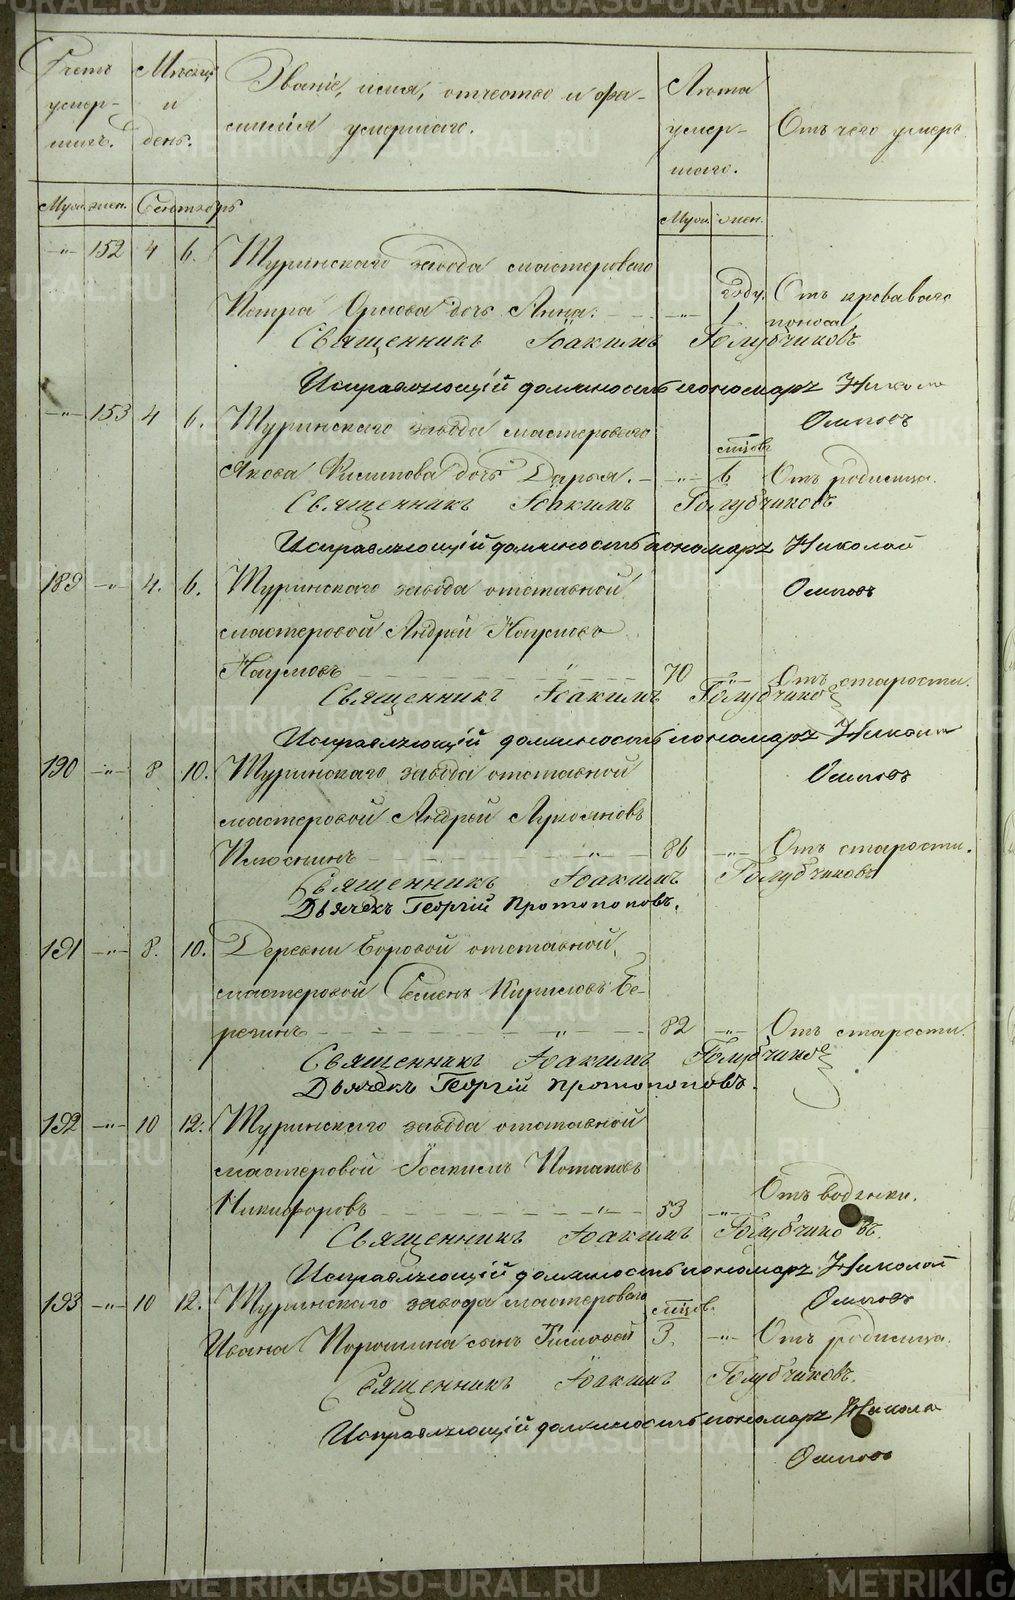 Счетъ умер-шихъ. Мѣсяцъ и день. Званіе, имя, отчество и фа-
милія умершаго. Лѣта умер-шаго. Отъ чего умеръ.
Муж. жен. Сентябрь Муж. жен.
-"- 152 4 6. Туринскаго завода мастероваго
Петра Орлова дочь Анна. -"- году. 1 Отъ кроваваго
поноса
Священникъ Іоакимъ Голубчиковъ
Исправляющій должность пономаря Николай
Осиповъ
-"- 153 4 6. Туринскаго завода мастероваго
Якова Филипова дочь Дарья. -"- мѣсяцовъ 6 Отъ родимца.
Священникъ Іоакимъ Голубчиковъ
Исправляющій должность пономаря Николай
Осиповъ
189 -"- 4. 6. Туринскаго завода отставной
мастеровой Андрей Наумовъ
Наумовъ " 70 -"- Отъ старости.
Священникъ Іоакимъ Голубчиковъ
Исправляющій должность пономаря Николай
Осиповъ
190 -"- 8 10. Туринскаго завода отставной
мастеровой Андрей Лукояновъ
Илюшинъ " 86 -"- Отъ старости.
Священникъ Іоакимъ Голубчиковъ
Дьячекъ Георгій Протопоповъ.
191 -"- 8. 10. Деревни Боровой отставной
мастеровой Семенъ Кириловъ Бе-
резинъ " 82 -"- Отъ старости.
Священникъ Іоакимъ Голубчиковъ
Дьячекъ Георгій Протопоповъ.
192 -"- 10 12. Туринскаго завода отставной
мастеровой Іоакимъ Потаповъ
Никифоровъ " 53 -"- Отъ водянки.
Священникъ Іоакимъ Голубчиковъ.
Исправляющій должность пономаря Николай
Осиповъ
193 -"- 10 12. Туринскаго завода мастероваго
Ивана Порошина сынъ Тимофей мѣсяцов. 3. -"- Отъ родимца.
Священникъ Іоакимъ Голубчиковъ.
Исправляющій должность пономаря Николай
Осиповъ
METRIKI.GASO-URAL.RU